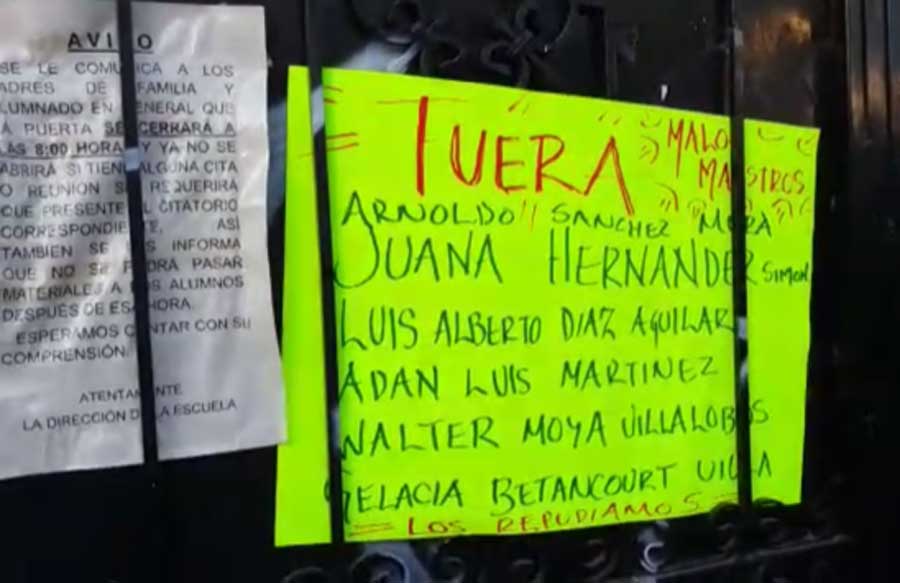 AVISO
SE LE COMUNICA A LOS
ADRES DE FAMILIA Y
LUMNADO EN GENERAL QUE
A PUERTA SE CERRARÁ A
LAS 8:00 HORAS Y YA NO SE
ABRIRÁ SI TIENE ALGUNA CITA
O REUNIÓN SE REQUERIRÁ
QUE PRESENTE EL CITATORIO
CORRESPONDIENTE, ASÍ
TAMBIEN SE LES INFORMA
QUE NO SE PODRA PASAR
MATERIALES A LOS ALUMNOS
DESPUÉS DE ESA HORA.
ESPERAMOS CONTAR CON SU
COMPRENSIÓN.
ATENTAMENTE
LA DIRECCIÓN DE LA ESCUELA
TUERA MALOS
MAESTROS
ARNOLDO SANCHEZ MORA
JUANA HERNANDEZ SIMON
LUIS ALBERTO DIAZ AGUILAR
ADAN LUIS MARTINEZ
WALTER MOYA VILLALOBOS
GELACIA BETANCOURT VILLA
LOS REPUDIAMOS